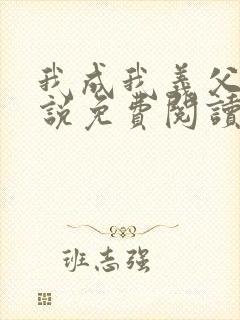 我成我義父
說免費閱讀
班志强